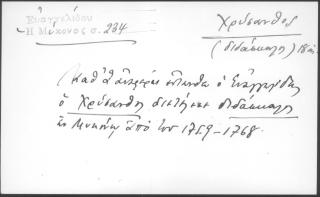 Εὐαγγελίδου
Ἡ Μύκονος σ. 234
Χρύσανθος
(διδάσκαλος) 18ος
ὁ Εὐαγγελίδης
ὁ Χρύσανθος διετέλεσε διδάσκαλος
ἐν Μυκόνῳ ἀπὸ τοῦ 1759-1768.